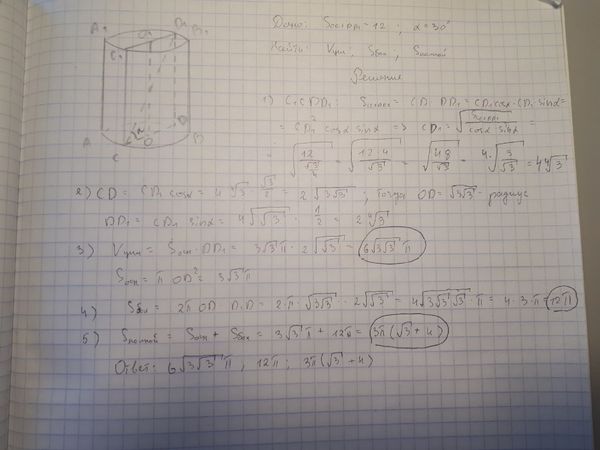 A₁ O₁ D₁ B₁
C₁
A O D B
C
Дано: Sсеч = 12 ; α = 30°
Найти: Vцил ; Sбок ; Sполной
Решение
1) C₁CDD₁: Sсеч = CD · DD₁ = CD₁cosα · CD₁ sinα =
= CD₁² cosα sinα => CD₁ = √(Sсеч / cosα sinα) =
= √(12 / (√3/4)) = √(12·4 / √3) = √(48 / √3) = 4·√(3/√3) = 4 ⁴√3
2) CD = CD₁ cosα = 4 ⁴√3 · √3/2 = 2 √(3√3) ; тогда OD = √(3√3) - радиус
DD₁ = CD₁ sinα = 4√√3 · 1/2 = 2 ⁴√3
3) Vцил = Sосн · DD₁ = 3√3 π · 2 √√3 = 6√(3√3) π
Sосн = π OD² = 3√3 π
4) Sбок = 2π OD · D₁D = 2·π·√(3√3) · 2√√3 = 4√(3√3√3) · π = 4·3·π = 12π
5) Sполной = Sосн + Sбок = 3√3 π + 12π = 3π(√3 + 4)
Ответ: 6√(3√3) π ; 12π ; 3π(√3 + 4)